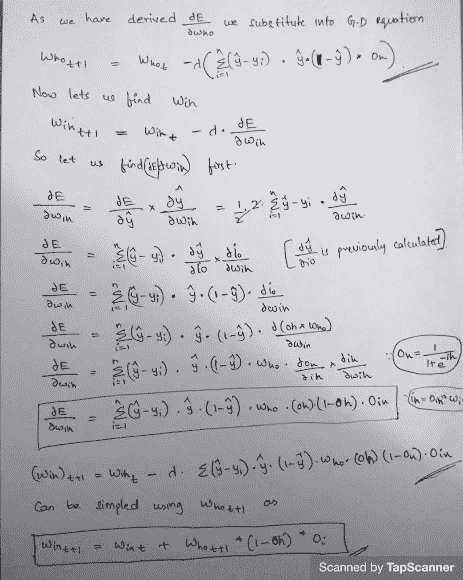 As we have derived ∂E/∂who we substitute into G.D equation
who t+1 = who t - λ( Σ(i=1 to n) (ŷ-yi) • ŷ•(1-ŷ) * Oh )
Now lets us find win
win t+1 = win t - d. ∂E/∂win
So let us find (∂E/∂win) first.
∂E/∂wih = ∂E/∂ŷ × ∂ŷ/∂wih = 1/2 . 2. Σ(i=1 to n) ŷ-yi • ∂ŷ/∂win
∂E/∂wih = Σ(i=1 to n) (ŷ-yi) • ∂ŷ/∂io × ∂io/∂wih [∂ŷ/∂io is previously calculated]
∂E/∂wih = Σ(i=1 to n) (ŷ-yi) • ŷ•(1-ŷ)• ∂io/∂win
∂E/∂wih = Σ(i=1 to n) (ŷ-yi) • ŷ•(1-ŷ) • ∂(oh × who)/∂win
∂E/∂wih = Σ(i=1 to n) (ŷ-yi) • ŷ•(1-ŷ) • who • ∂oh/∂ih × ∂ih/∂wih ∵ Oh = 1/(1+e^-ih)
∂E/∂wih = Σ(i=1 to n) (ŷ-yi) • ŷ • (1-ŷ) • who • (oh)(1-oh) • Oin
(win) t+1 = win t - d. Σ(ŷ-yi)•ŷ•(1-ŷ)•who•(oh)(1-oh)•Oin
Can be simpled using who t+1 as
win t+1 = win t + who t+1 * (1-oh) * Oi
Scanned by TapScanner